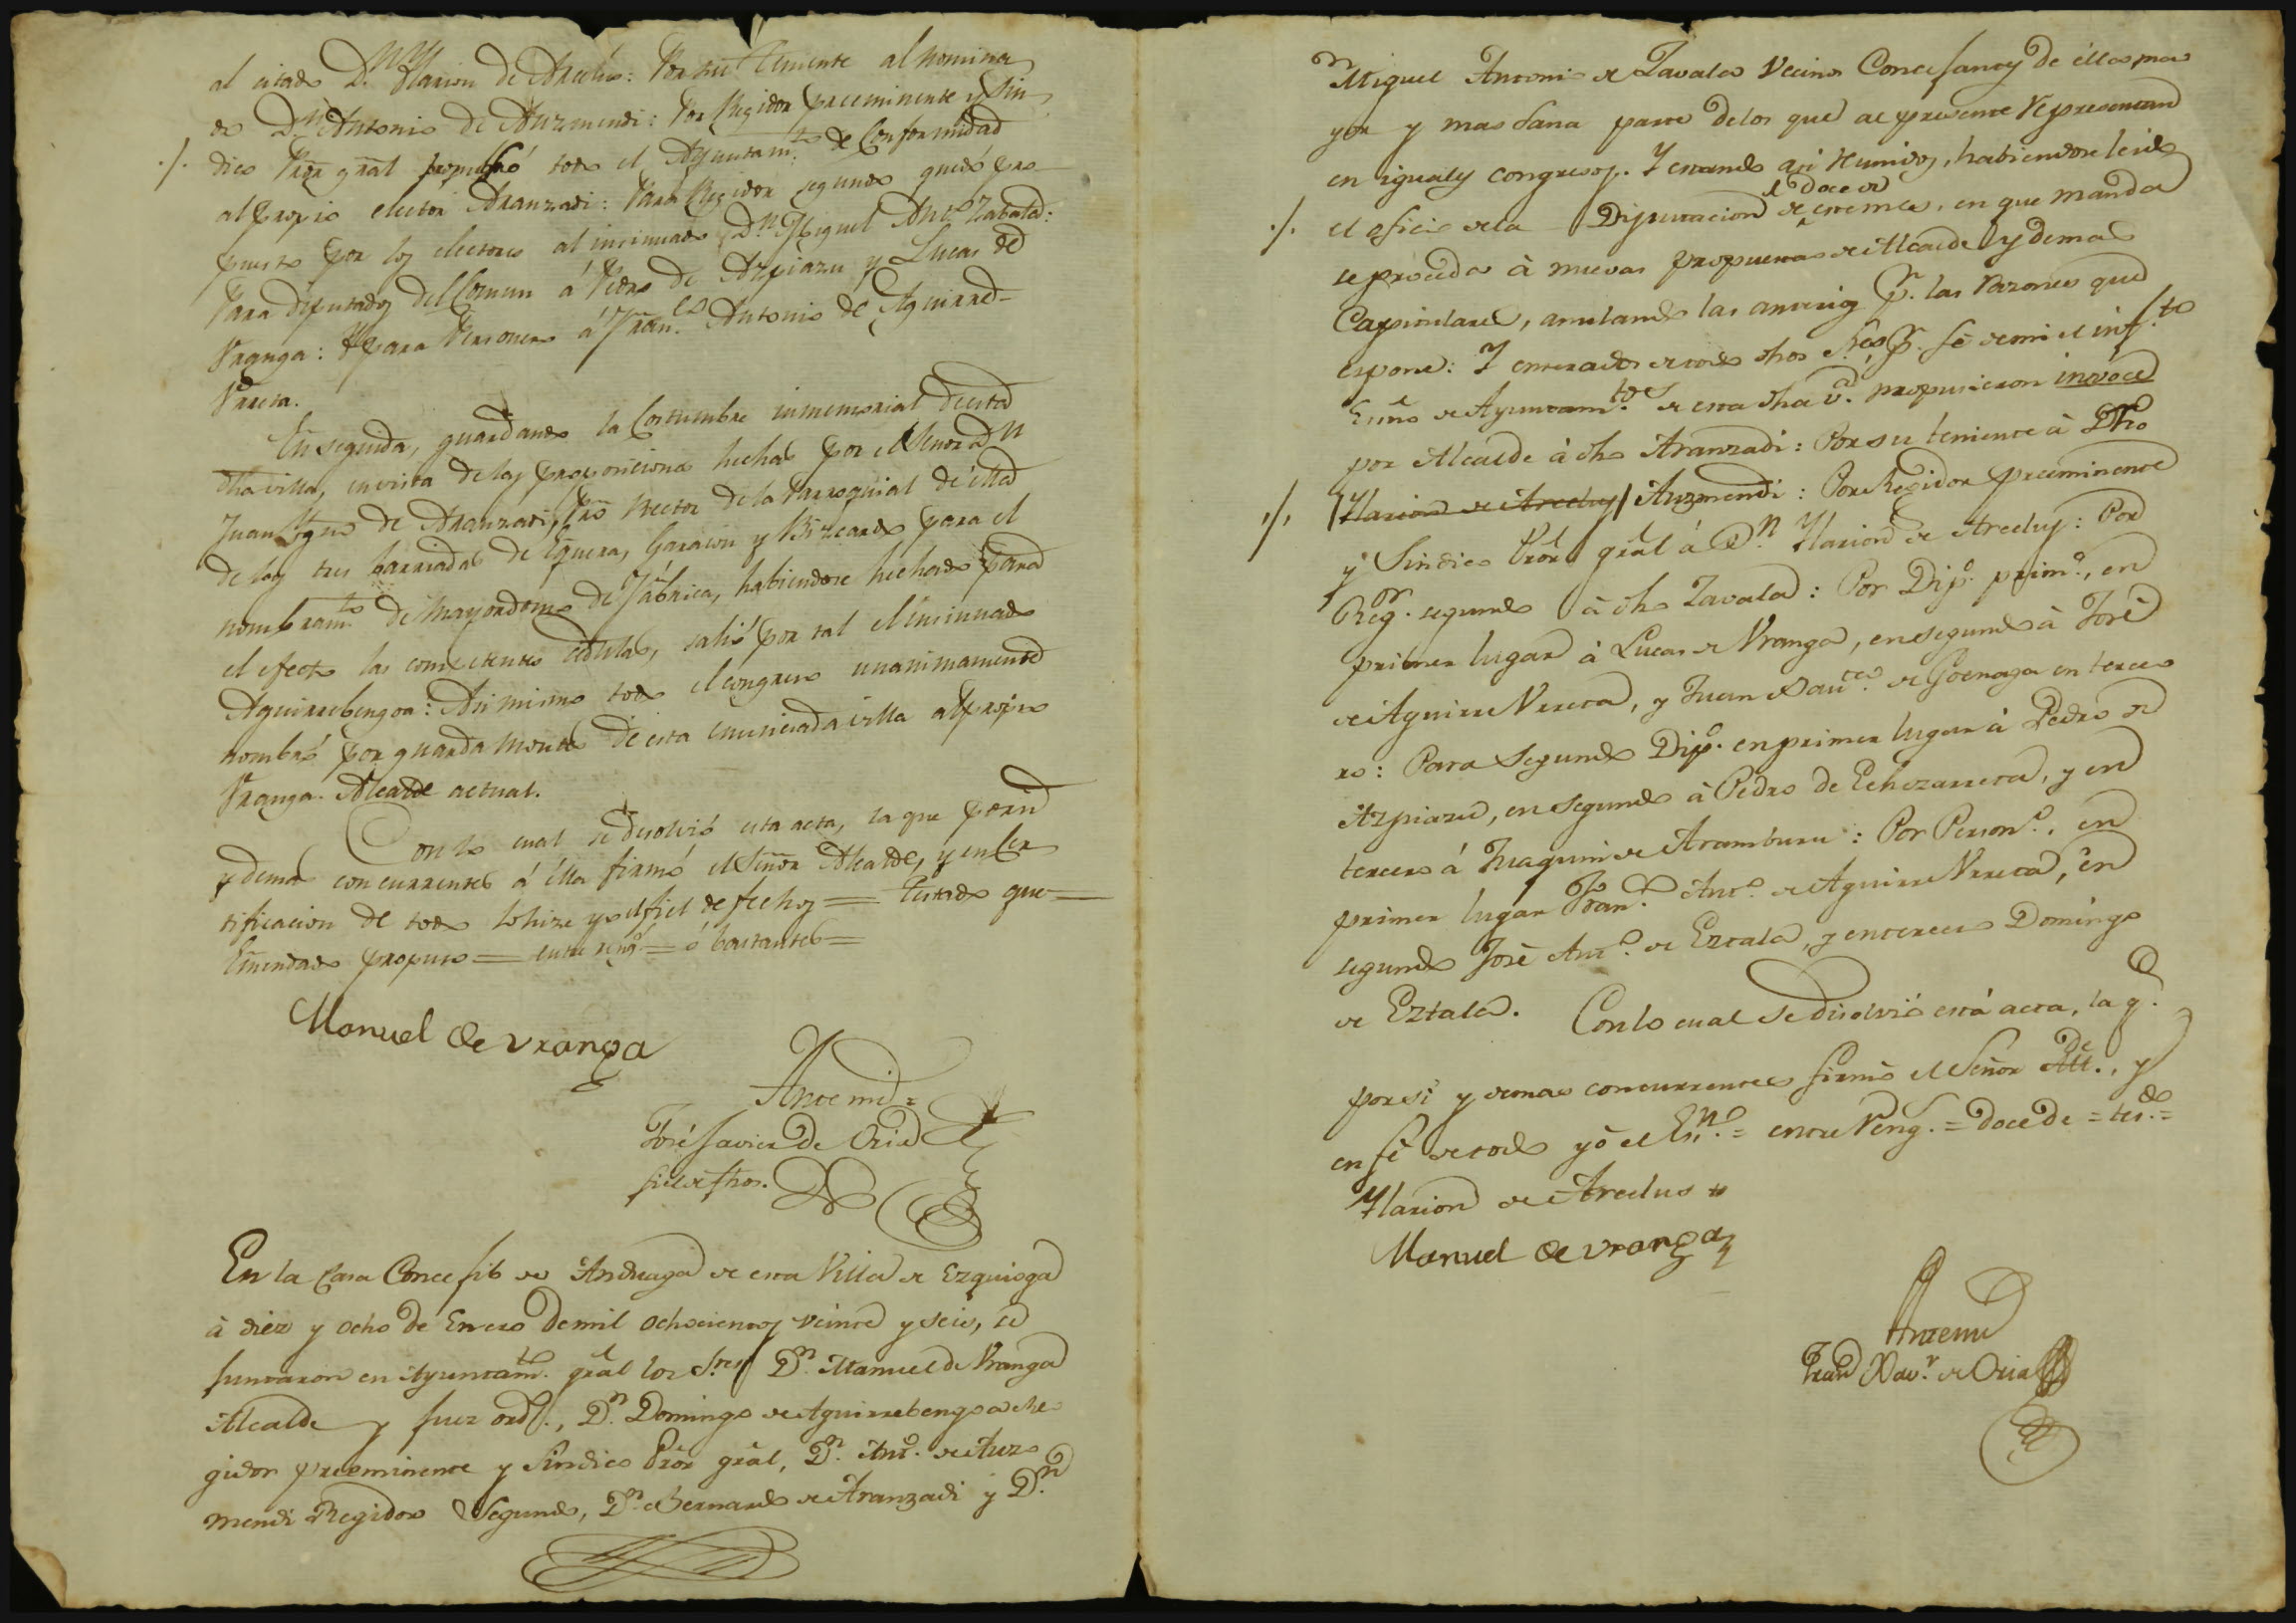 al citado D.n Ylarion de Areclus: Por su teniente al nomina
do D.n Antonio de Auzmendi: Por Regidor preeminente y Sin
./. dico Pror gral propuso todo el Ayuntam.to de Conformidad
al propio elector Aranzadi: Para Regidor segundo quedó pro-
puesto por los electores al insinuado D.n Miguel Ant.o Zabala:
Para Diputados del Comun á Pedro de Azpiazu y Lucas de
Vranga: y para Personero á Fran.co Antonio de Aguirre-
Vrreta.
En seguida, guardando la Costumbre inmemorial de esta
dha villa, en vista de las proposiciones hechas por el Señor D.n
Juan Ygn.o de Aranzadi, Pro Rector de la Parroquial de ella
de las tres barriadas de Eguera, Garaion y Vizcardo para el
nombram.to de Mayordomo de Fabrica, habiendose hechado para
el efecto las competentes cedulas, salió por tal el insinuado
Aguirrebengoa: Asi mismo todo el congreso unanimamente
nombró por guarda monte de esta enunciada villa al propio
Vranga Alcalde actual.
Con lo cual se disolvió esta acta, la que por sí
y demas concurrentes á ella firmó el Señor Alcalde, y en Cer
tificacion de todo lo hize yo el fiel de fechos = Testado que =
Enmendado propuso = entre reng.s = ó bastantes =
Manuel de Vranga
Ante mi =
José Javier de Oria
fiel de fhos.
En la Casa Concejil de Anduaga de esta Villa de Ezquioga
à diez y ocho de Enero de mil ochocientos veinte y seis, se
juntaron en Ayuntam.to gral los S.res D.n Manuel de Vranga
Alcalde y Juez ord.o, D.n Domingo de Aguirrebengoa Re-
gidor preeminente y Sindico Pror gral, D.n Ant.o de Auz-
mendi Regidor Segundo, D.n Bernardo de Aranzadi y D.n
Miguel Antonio de Zavala Vecinos Concejantes de ella, ma
yor y mas sana parte de los que al presente representan
en iguales congresos. Y estando asi reunidos, habiendose leido
el doce de
./. el oficio de la Diputacion de este mes, en que manda
se proceda à nuevas propuestas de Alcalde y demas
Capitulares, anulando las anteriores p.r las razones que
espone: Y enterados de todo dhos S.res p.r fè de mi el inf.to
Esno de Ayuntam.to de esta dha v.a propusieron invoce
por Alcalde à dho Aranzadi: Por su teniente à dho
./. Ylarion de Areclus Auzmendi: Por Regidor preeminente
y Sindico Pror gral á D.n Ylarion de Areclus: Por
Reg.or segundo à dho Zavala: Por Dip.o prim.o, en
primer lugar à Lucas de Vranga, en segundo à Josè
de Aguirre Vrreta, y Juan Bau.ta de Goenaga en terce
ro: Para Segundo Dip.o en primer lugar à Pedro de
Azpiazu, en segundo à Pedro de Echezarreta, y en
tercero á Juaquin de Aramburu: Por Person.o, en
primer lugar Fran.co Ant.o de Aguirre Vrreta, en
segundo Josè Ant.o de Eztala, y en tercero Domingo
de Eztala. Con lo cual se disolvió está acta, la q.e
por sí y demas concurrentes firmò el Señor Alc.de, y
en fè de todo yò el Es.no = entre Reng.s = doce de = tes.do =
Ylarion de Areclus
Manuel de Vranga
Ante mi
Juan Xav.r de Oria